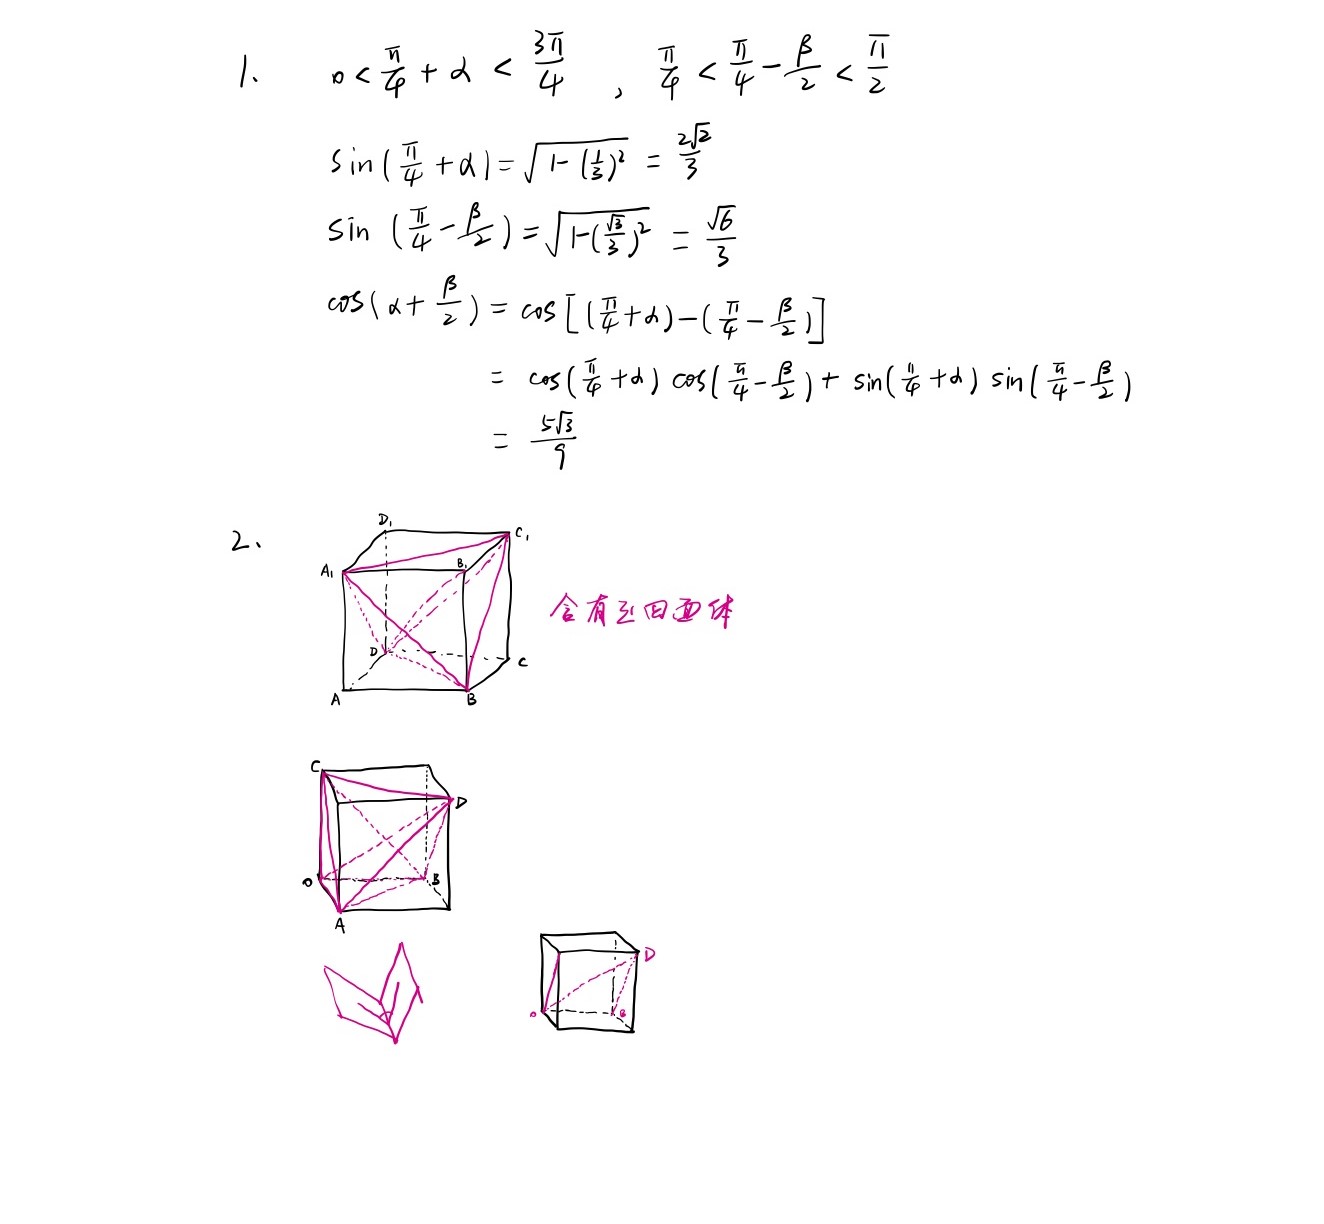 1. 0 < π/4 + α < 3π/4 , π/4 < π/4 - β/2 < π/2
sin(π/4 + α) = √(1-(1/3)²) = 2√2/3
sin(π/4 - β/2) = √(1-(√3/3)²) = √6/3
cos(α + β/2) = cos[(π/4+α)-(π/4-β/2)]
= cos(π/4+α) cos(π/4-β/2) + sin(π/4+α) sin(π/4-β/2)
= 5√3/9
2.
D₁ C₁
A₁ B₁
含有正四面体
D C
A B
C
D
O B
A
D
O B